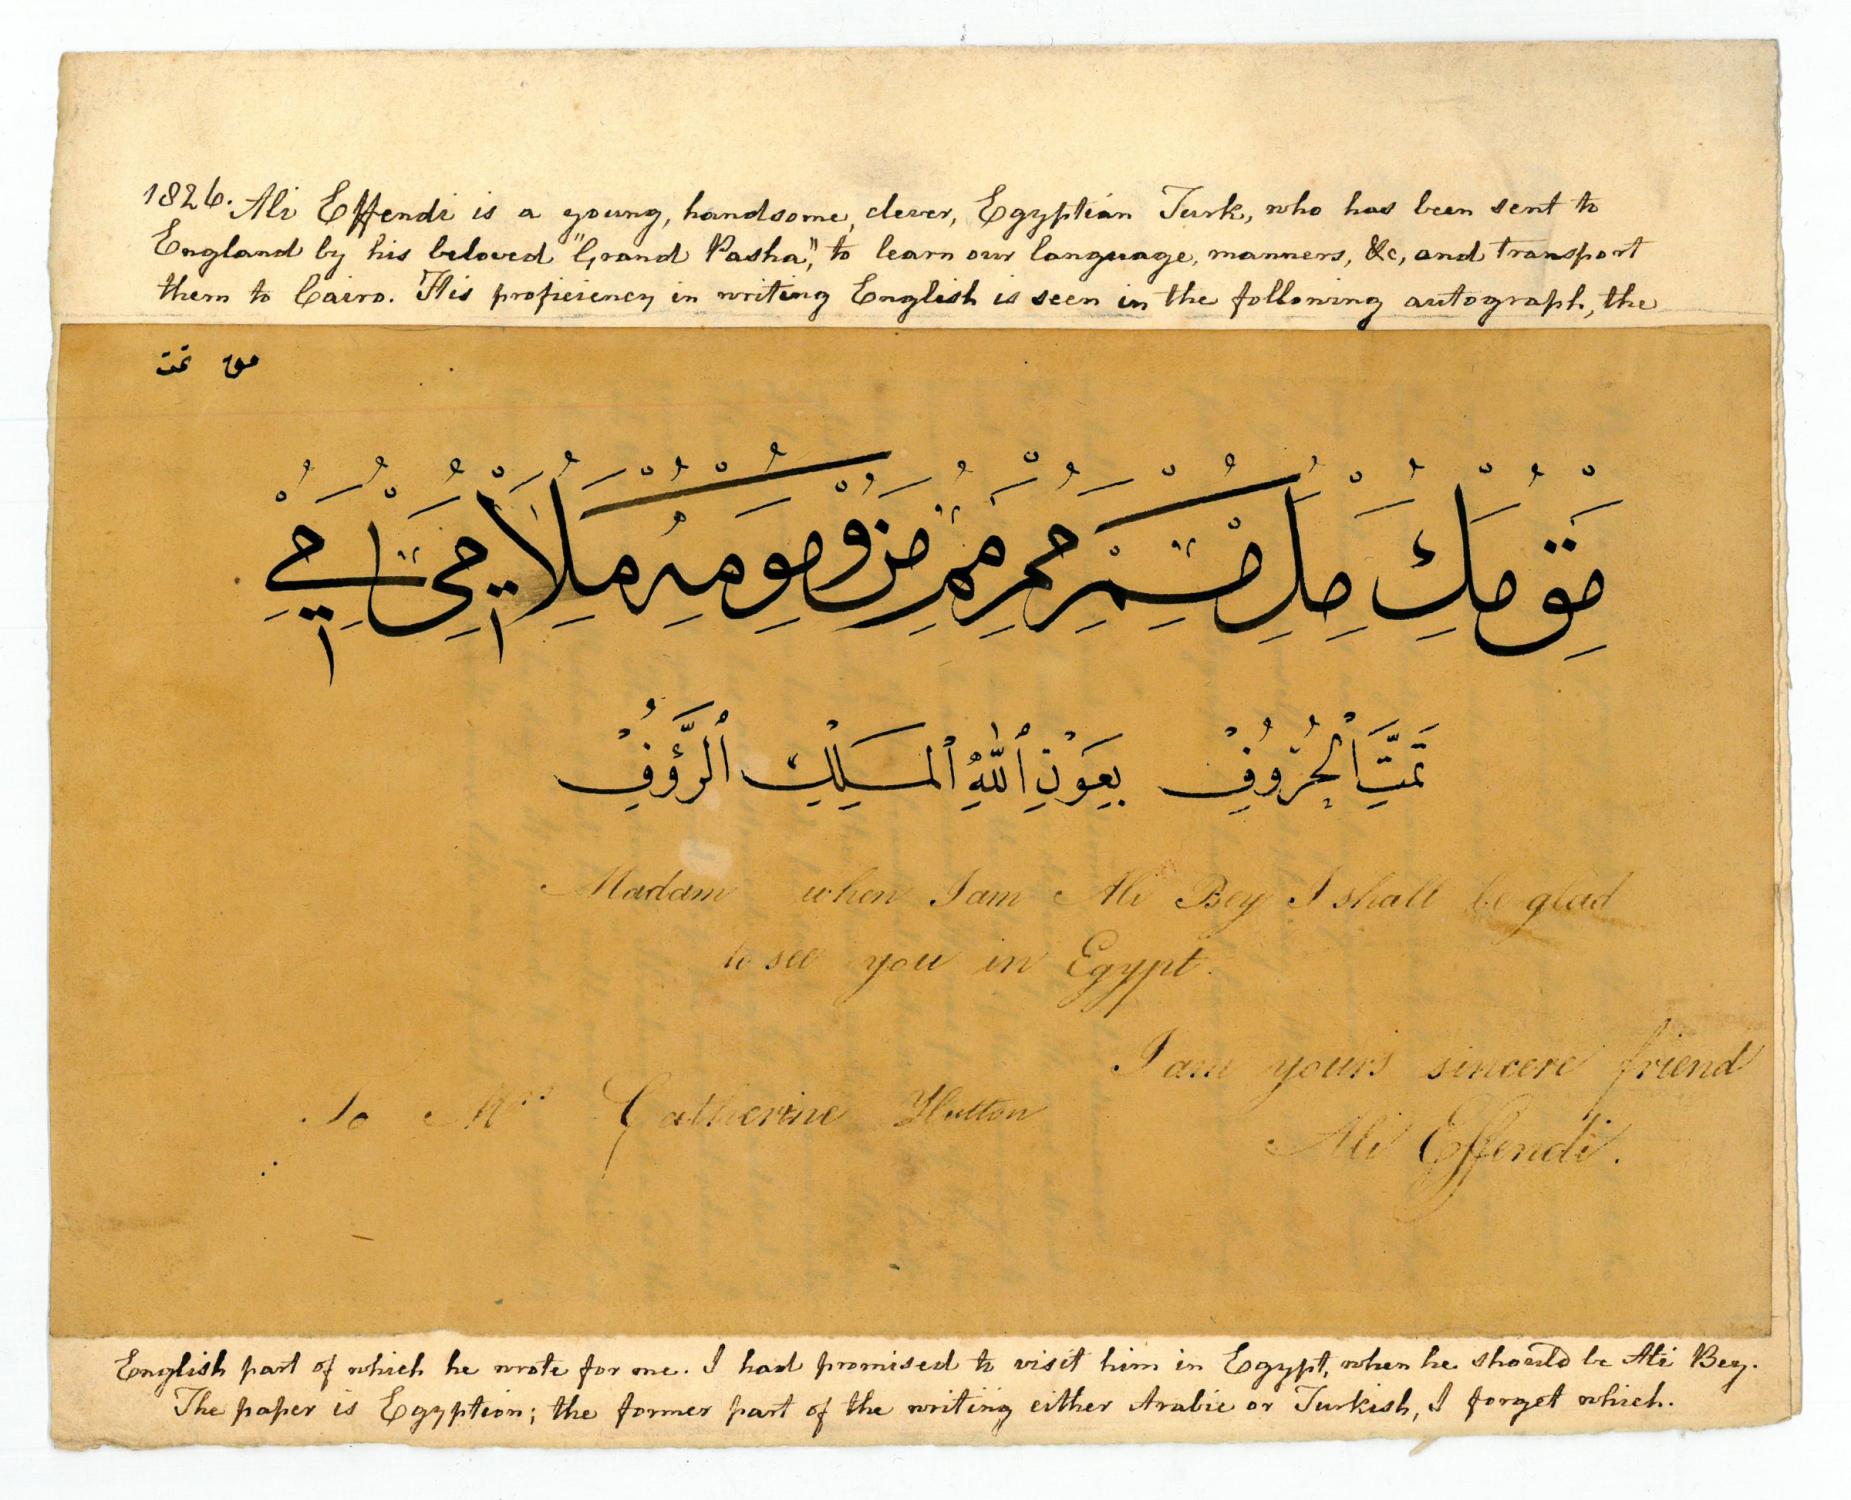 1826. Ali Effendi is a young, handsome, clever, Egyptian Turk, who has been sent to
England by his beloved "Grand Pasha", to learn our language, manners, &c, and transport
them to Cairo. His proficiency in writing English is seen in the following autograph, the
مق تمت
مَقِ مَكِ مَلِ مَمِ
تَمَّتِ الْحُرُوُفِ بِعَوْنِ ٱللّٰهِ ٱلْمَلِكِ ٱلرَّؤُفِ
Madam when I am Ali Bey I shall be glad
to see you in Egypt.
I am yours sincere friend
To Mrs Catherine Hutton
Ali Effendi.
English part of which he wrote for me. I had promised to visit him in Egypt, when he should be Ali Bey.
The paper is Egyption; the former part of the writing either Arabic or Turkish, I forget which.